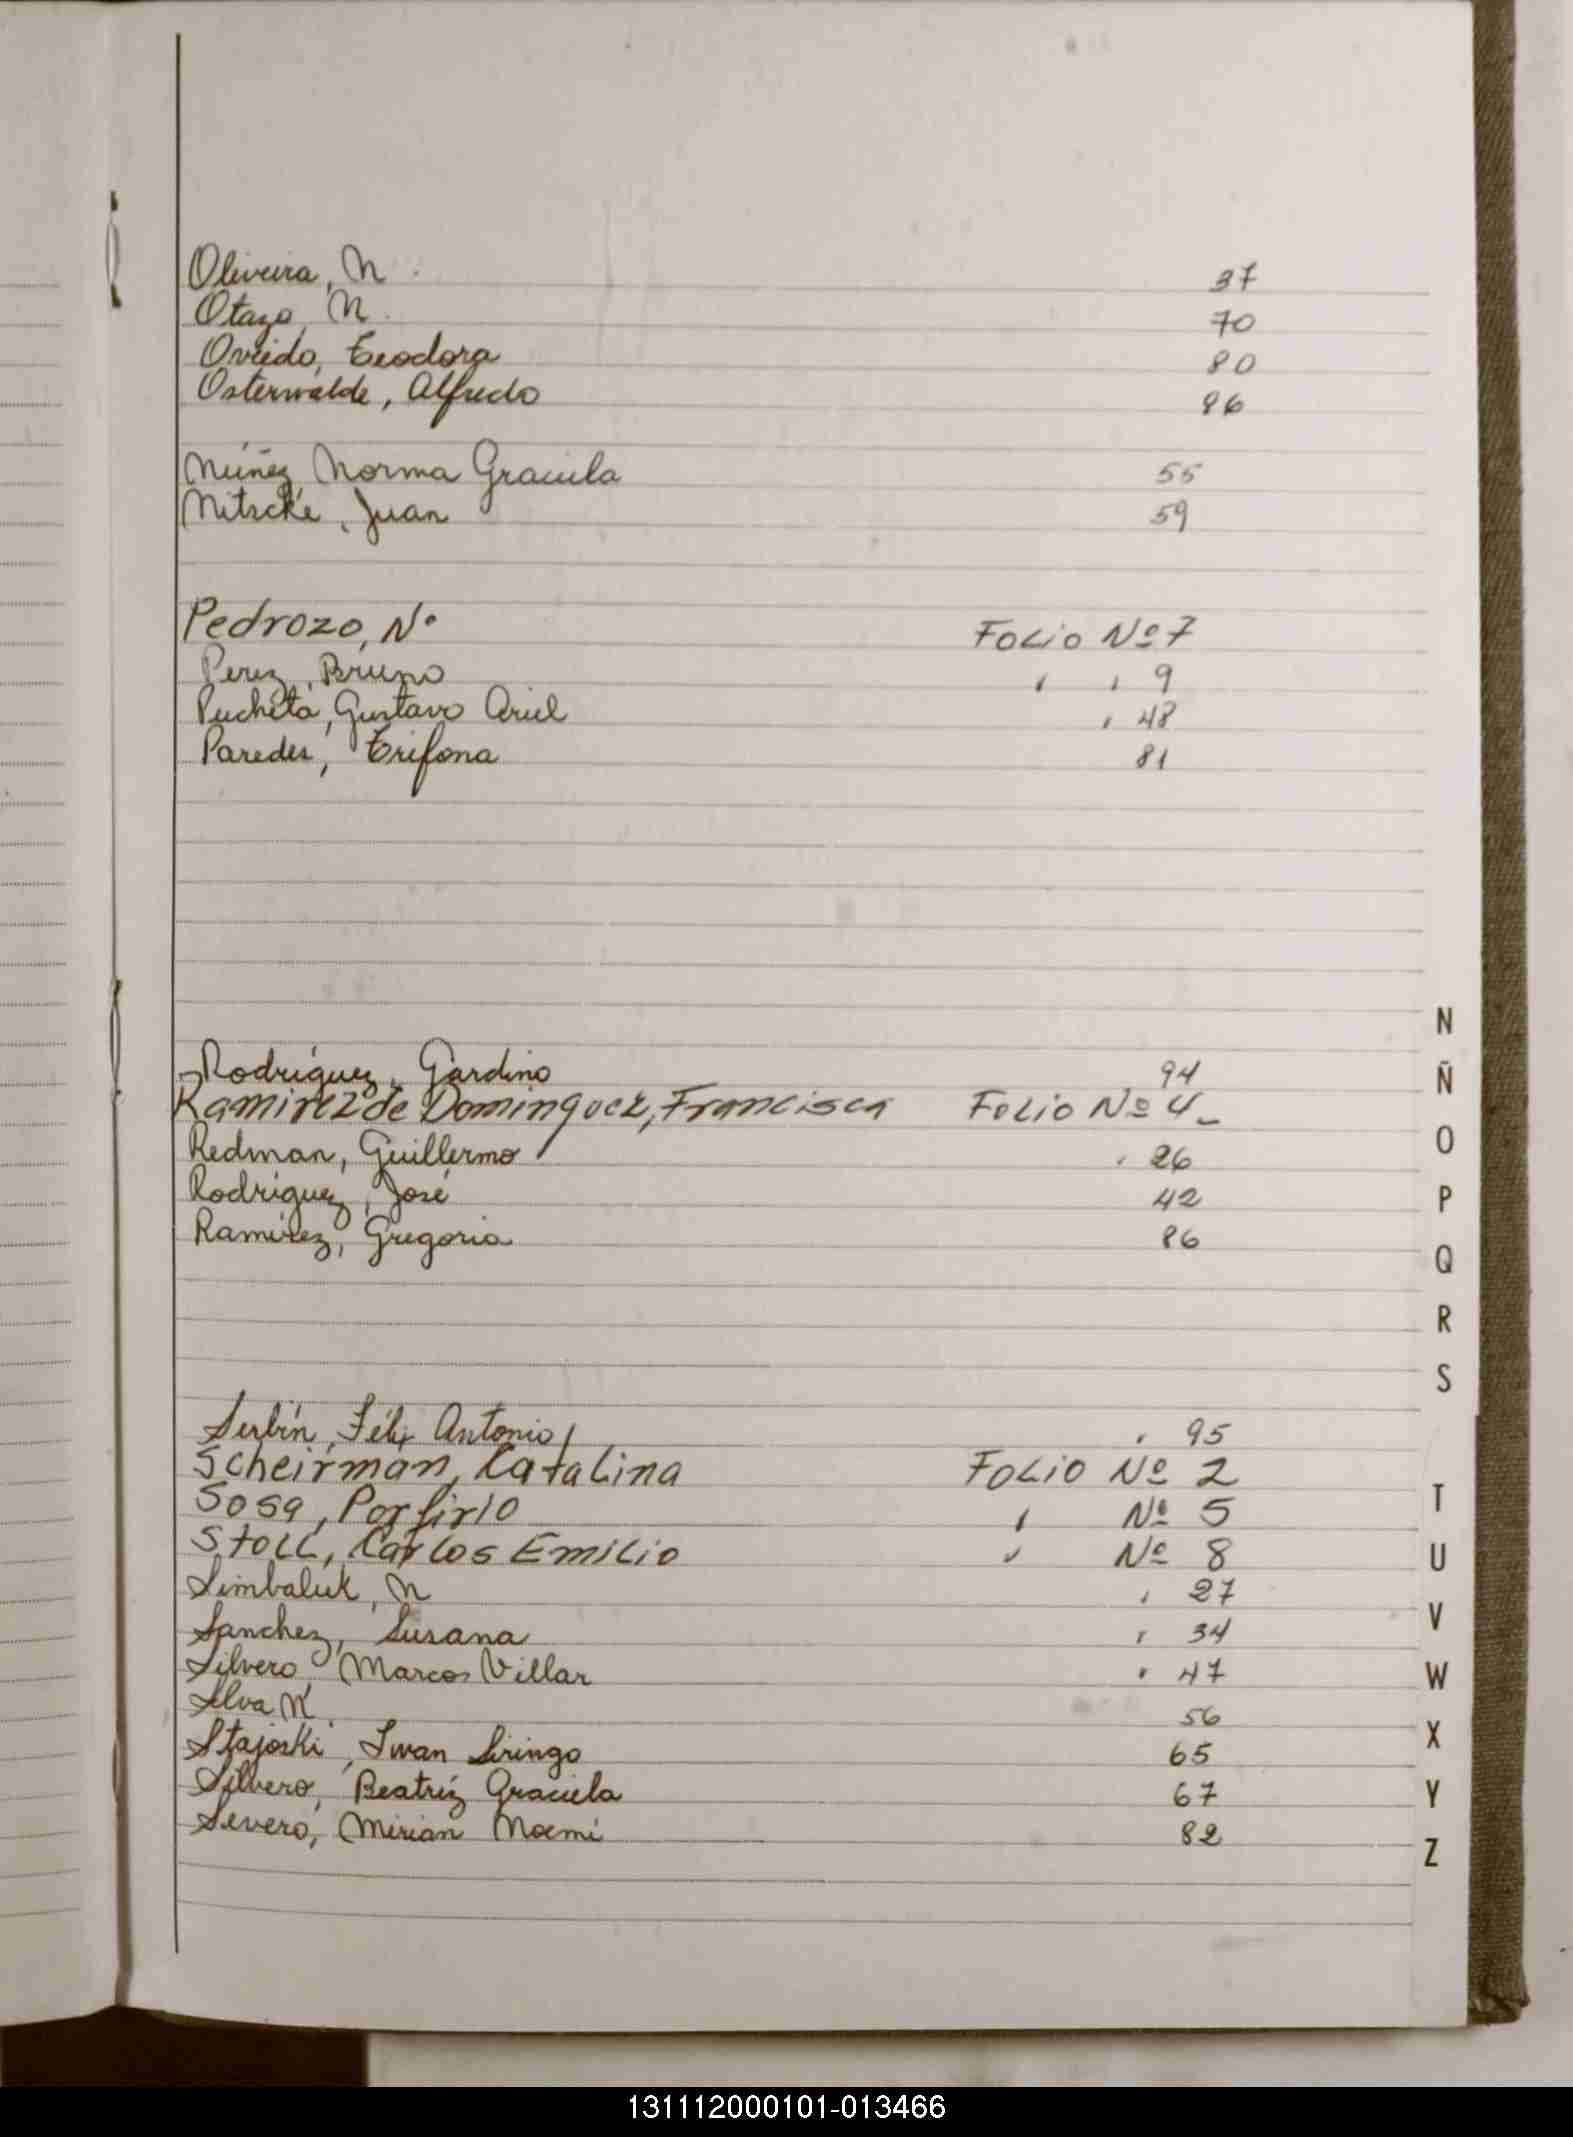 Oliveira, N. 37
Otazo, N. 70
Oviedo, Teodora 80
Osterwalde, Alfredo 86
Núñez Norma Graciela 55
Nitscke, Juan 59
Pedrozo, Nº Folio Nº 7
Perez, Bruno , , 9
Pucheta, Gustavo Ariel , 48
Paredes, Trifona 81
Rodríguez, Gardino 94
Ramirez de Dominguez, Francisca Folio Nº 4_
Redman, Guillermo . 26
Rodríguez, José 42
Ramírez, Gregoria 86
Serbín, Félix Antonio , 95
Scheirman, Catalina Folio Nº 2
Sosa, Porfirio , Nº 5
Stoll, Carlos Emilio , Nº 8
Simbaluk, N , 27
Sanchez, Susana , 34
Silvero, Marcos Villar , 47
Silva N. 56
Stajoski, Iwan Siringo 65
Silvero, Beatríz Graciela 67
Severo, Mirian Noemi 82
N
Ñ
O
P
Q
R
S
T
U
V
W
X
Y
Z
131112000101-013466